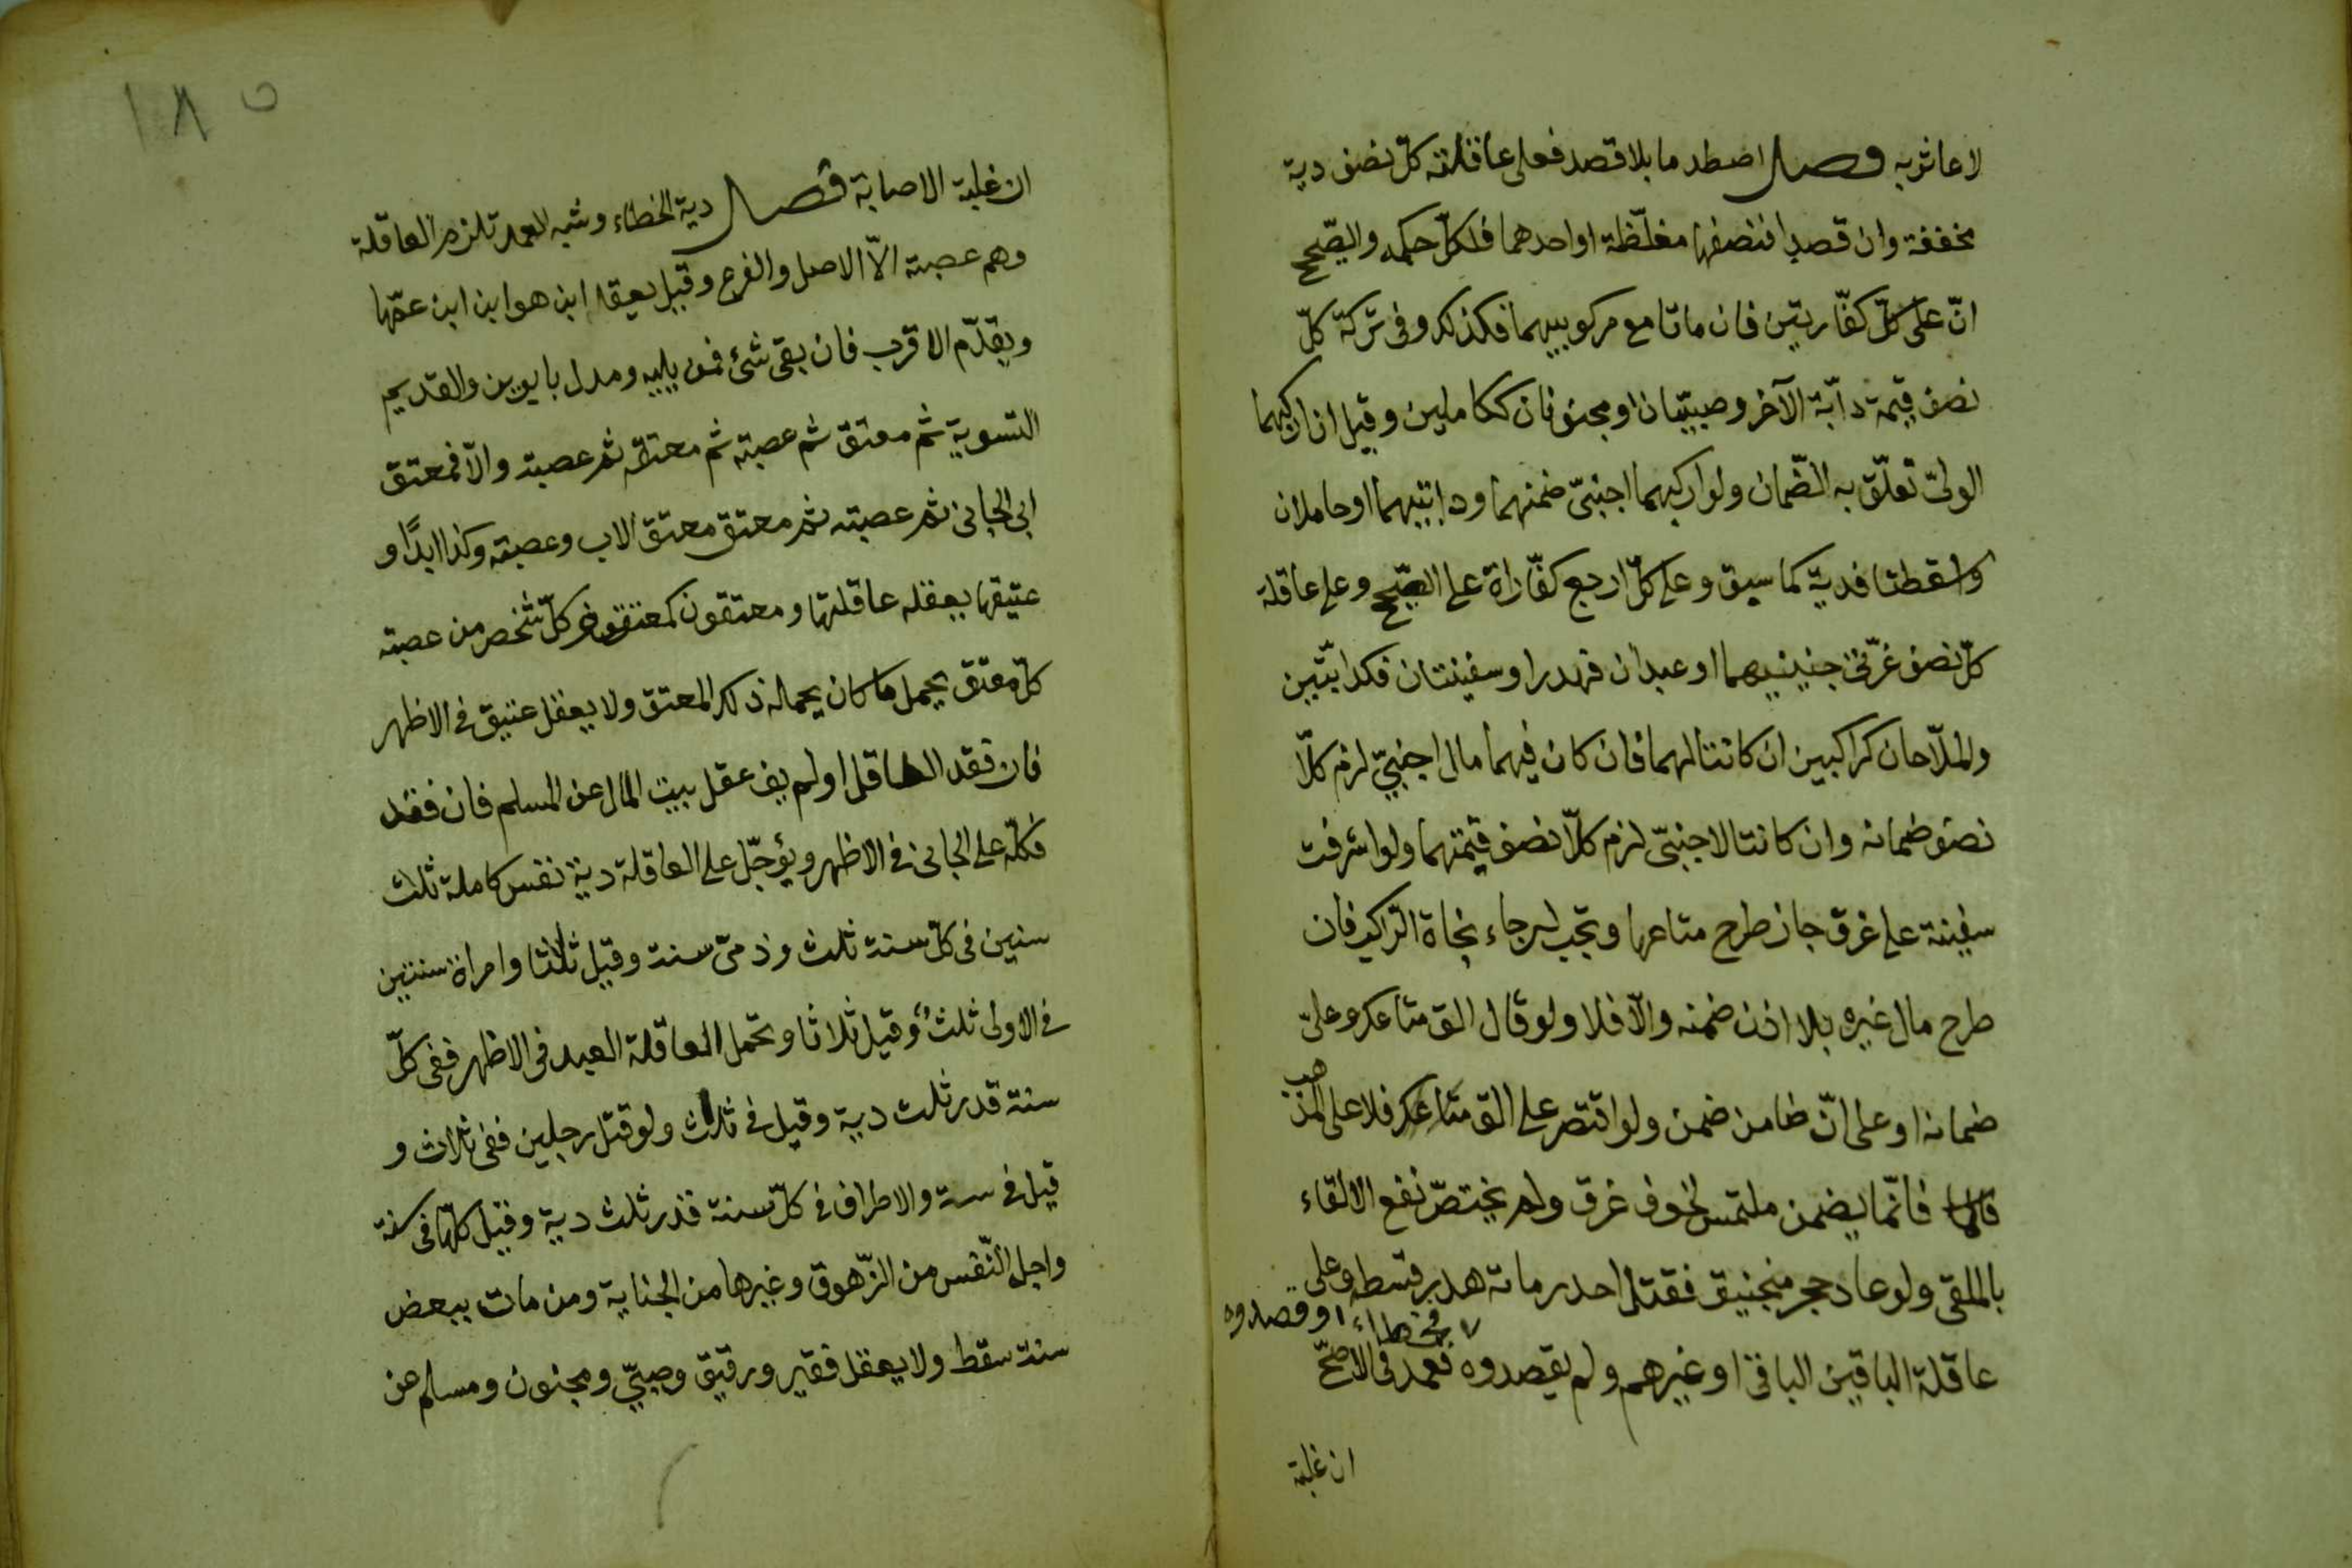 لا عاثر به فصل اصطدما بلا قصد فعلى عاقلته كلّ نصف دية
مخففة وان قصدا فنصفها مغلّظة او احدهما فلكلّ حكمه والصّحيح
انّ على كلّ كفّارتين فان ماتا مع مركوبيهما فكذلك وفى تركة كلّ
نصف قيمة دابّة الآخر وصبيّان او مجنونان ككاملين وقيل ان اركبهما
الولىّ تعلّق به الضّمان ولو اركبهما اجنبىّ ضمنهما ودابتيهما او حاملان
واسقطتا فديّة كما سبق وعلى كلّ اربع كفّاراة على الصّحيح وعلى عاقلة
كلّ نصف غرّتى جنينيهما او عبدان فهدر او سفينتان فكدابّتين
والملاّحان كراكبين ان كانتا لهما فان كان فيهما مال اجنبىّ لزم كلّا
نصف ضمانه وان كانتا لاجنبىّ لزم كلّا نصف قيمتهما ولو اشرفت
سفينة على غرق جاز طرح متاعها ويجب لرجاء نجاة الرّاكب فان
طرح مال غيره بلا اذن ضمنه والّا فلا ولو قال الق متاعك وعلىّ
ضمانه او على انّى ضامن ضمن ولو اقتصر على الق متاعك فلا على المذهب
فانّما يضمن ملتمس لخوف غرق ولم يختصّ نفع الالقاء
بالملقى ولو عاد حجر منجنيق فقتل احد رماته هدر قسطه وعلى
عاقلة الباقين الباقى او غيرهم ولم يقصدوه فخطاء او قصدوه فعمد فى الاصحّ
ان غلبة
١٨٥
ان غلبة الاصابة فصل دية الخطاء وشبه العمد تلزم العاقلة
وهم عصبته الاّ الاصل والفرع وقيل يعقل ابن هو ابن ابن عمّها
ويقدّم الاقرب فان بقى شئ فمن يليه ومدل بابوين والقديم
التسوية ثم معتق ثم عصبته ثم معتقه ثم عصبته والّا فمعتق
ابى الجانى ثم عصبته ثم معتق معتق الاب وعصبته وكذا ابدًا و
عتيقها يعقله عاقلتها ومعتقون كمعتق وكلّ شخص من عصبته
كلّ معتق يحمل ما كان يحمله ذلك المعتق ولا يعقل عتيق فى الاظهر
فان فقد العاقل او لم يف عقل بيت المال عن المسلم فان فقد
فكلّه على الجانى فى الاظهر ويؤجّل على العاقلة دية نفس كاملة ثلث
سنين فى كلّ سنة ثلث وذمّى سنة وقيل ثلاثا وامراة سنتين
فى الاولى ثلث وقيل ثلاثا وتحمل العاقلة العبد فى الاظهر ففى كلّ
سنة قدر ثلث دية وقيل فى ثلاث ولو قتل رجلين ففى ثلاث و
قيل فى ستة والاطراف فى كلّ سنة قدر ثلث دية وقيل كلّها فى سنة
واجل النّفس من الزّهوق وغيرها من الجناية ومن مات ببعض
سنة سقط ولا يعقل فقير ورقيق وصبىّ ومجنون ومسلم عن